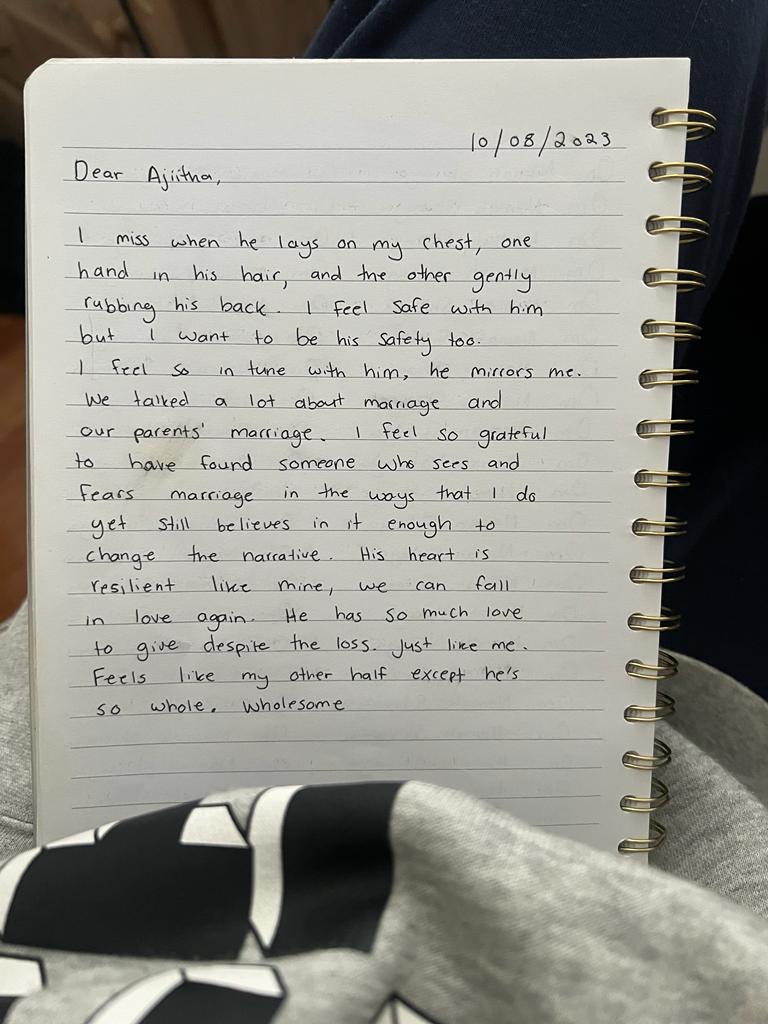 10/08/2023
Dear Ajitha,
I miss when he lays on my chest, one
hand in his hair, and the other gently
rubbing his back. I feel safe with him
but I want to be his safety too.
I feel so in tune with him, he mirrors me.
We talked a lot about marriage and
our parents' marriage. I feel so grateful
to have found someone who sees and
fears marriage in the ways that I do
yet still believes in it enough to
change the narrative. His heart is
resilient like mine, we can fall
in love again. He has so much love
to give despite the loss. Just like me.
Feels like my other half except he's
so whole. Wholesome